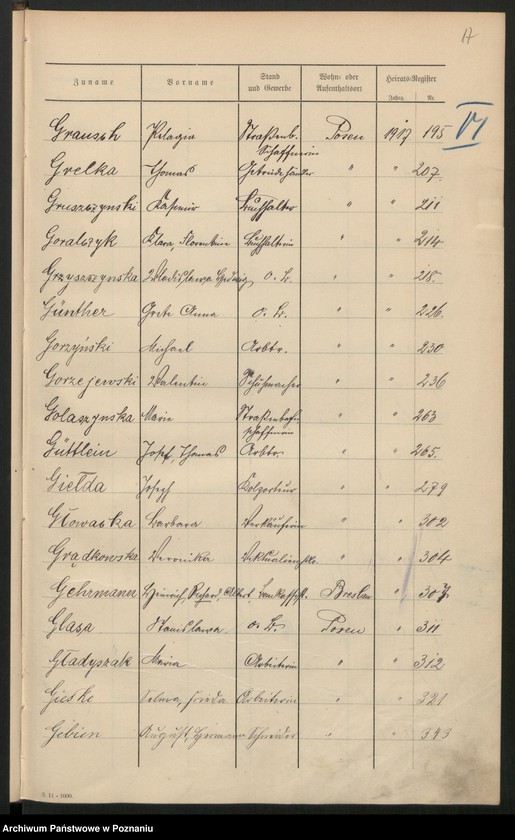 17
Zuname Vorname Stand und Gewerbe Wohn- oder Aufenthaltsort Heirats-Register Jahrg. Nr.
Grausch Pelagia Straßenb. Schaffnerin Posen 1917 195 VI
Grelka Thomas Getreidehändler " " 207.
Gruszczynski Kasimir Buchhalter " " 211
Goralczyk Klara, Florentine Buchhalterin " " 214
Grzyszczynska Wladislawa Hedwig o. B. " " 218.
Günther Grete Anna o. B. " " 226.
Gorzyński Michael Arbtr. " " 230
Gorzejewski Valentin Schuhmacher " " 236
Golaszynska Maria Straßenbahn schaffnerin " " 263
Güttlein Josef, Thomas Arbtr. " " 265.
Giełda Joseph Kolporteur " " 279
Głowacka Barbara Verkäuferin " " 302
Grądkowska Veronika " " 304
Gehrmann Heinrich, Richard, Albert Breslau " 307
Glasa Stanislawa o. B. Posen " 311
Gładyszak Maria Arbeiterin " " 312
Gieske Selma, Frieda Arbeiterin " " 321
Gebien August, Hermann Schneider " " 343
S. 11 - 1000.
Archiwum Państwowe w Poznaniu